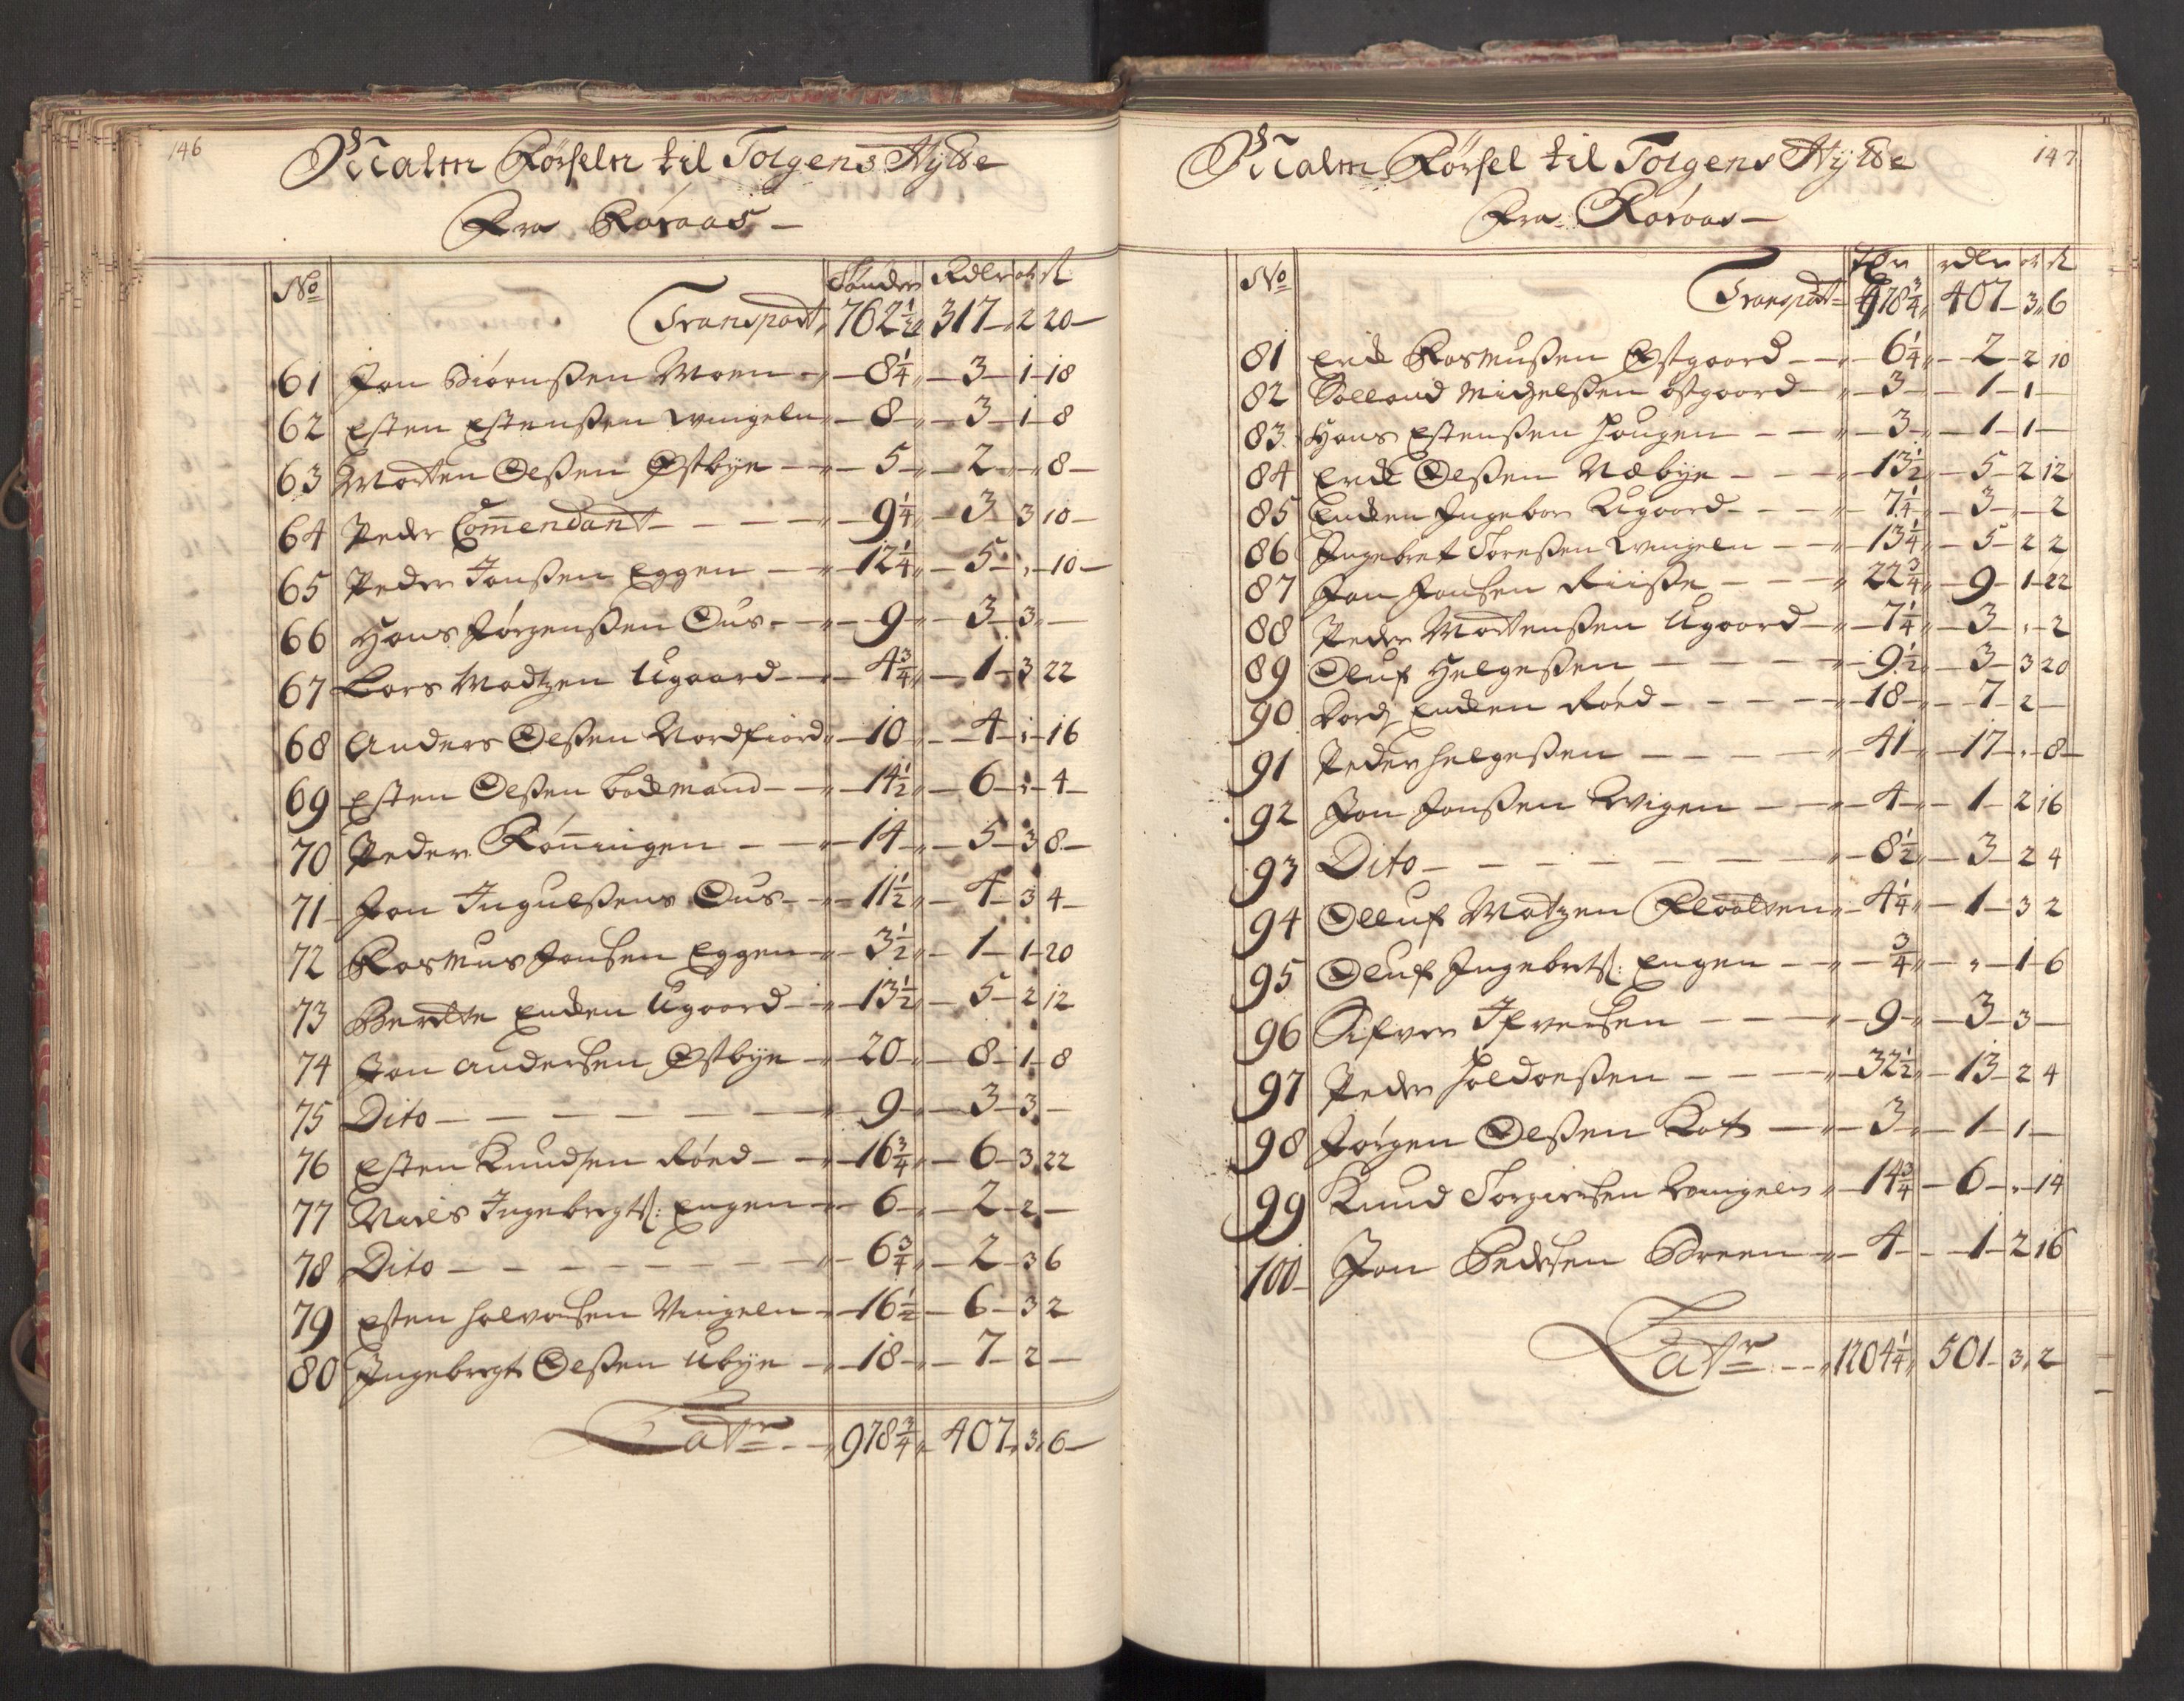 146
Malm Körseln til Tolgens Hytte
Fra Röraas
No Tönder Rdlr ort ß
Transport 762 1/2 317 2 20
61 Jon Biörnßen Moen 8 1/4 3 1 18
62 Esten Estenßen Wingeln 8 3 1 8
63 Morten Olßen Østbye 5 2 " 8
64 Peder Com̅endant 9 1/4 3 3 10
65 Peder Jonßen Eggen 12 1/4 5 " 10
66 Hans Jörgenßen Ous 9 3 3
67 Lars Madtzen Ugaard 4 3/4 1 3 22
68 Anders Olßen Nordfiord 10 4 " 16
69 Esten Olßen Bodmand 14 1/2 6 " 4
70 Peder Rön̅ingen 14 5 3 8
71 Jon Ingulßens Ous 11 1/2 4 3 4
72 Rasmus Jonsen Eggen 3 1/2 1 1 20
73 Berette Enken Ugaard 13 1/2 5 2 12
74 Jon Andersen Østbye 20 8 1 8
75 Dito 9 3 3
76 Esten Knudsen Röed 16 3/4 6 3 22
77 Niels Ingebregtß: Engen 6 2 2
78 Dito 6 3/4 2 3 6
79 Esten Halvorsen Vingeln 16 1/2 6 3 2
80 Ingebregt Olßen Ubÿe 18 7 2
Latr 978 3/4 407 3 6
147
Malm Körsel til Tolgens Hytte
Fra Röraas
No Tdr rdlr ort ß
Transport 978 3/4 407 3 6
81 Erick Rasmußen Østgaard 6 1/4 2 2 10
82 Michelßen Østgaard 3 1 1
83 Hans Estenßen Hougen 3 1 1
84 Erick Olßen Næbye 13 1/2 5 2 12
85 Enken Ingebor Ugaard 7 1/4 3 " 2
86 Ingebret Toreßen Wingeln 13 1/4 5 2 2
87 Jon Jonsen Riiße 22 3/4 9 1 22
88 Peder Mortenßen Ugaard 7 1/4 3 " 2
89 Oluf Helgeßen 9 1/2 3 3 20
90 Enken Röed 18 7 2
91 Peder Helgeßen 41 17 " 8
92 Jon Jonßen Kvigen 4 1 2 16
93 Dito 8 1/2 3 2 4
94 Olluf Matzen 4 1/4 1 3 2
95 Oluf Ingebretß: Engen 3/4 " 1 6
96 Sifver Ifversen 9 3 3
97 Peder Holdoeßen 32 1/2 13 2 4
98 Jörgen Olßen Kat 3 1 1
99 Knud Torgiersen Wingeln 14 3/4 6 " 14
100 Jon Pedersen Breen 4 1 2 16
Latr 1204 1/4 501 3 2